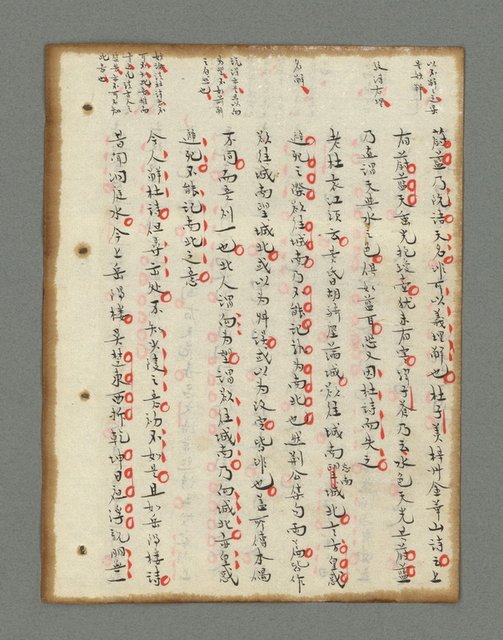 蔚藍乃隱語天名非可以義理解也杜子美梓州金華山詩云上
有蔚藍天垂光抱瓊臺猶未有害韓子蒼乃云水色天光共蔚藍
乃直謂天與水之色俱如藍耳恐又因杜詩而失之
老杜哀江頭云黃昏胡騎塵滿城欲往城南望城北言方皇惑
避死之際欲往城南乃不能記孰為南北也然荊公集句兩篇皆作
欲往城南望城北或以為舛誤或以為改定皆非也蓋所傳本偶
不同而意則一也北人謂向為望謂欲往城南乃向城北亦皇惑
避死不能記南北之意
今人解杜詩但尋出處不知少陵之意初不如是且如岳陽樓詩
昔聞洞庭水今上岳陽樓吳楚東南坼乾坤日夜浮親朋無一